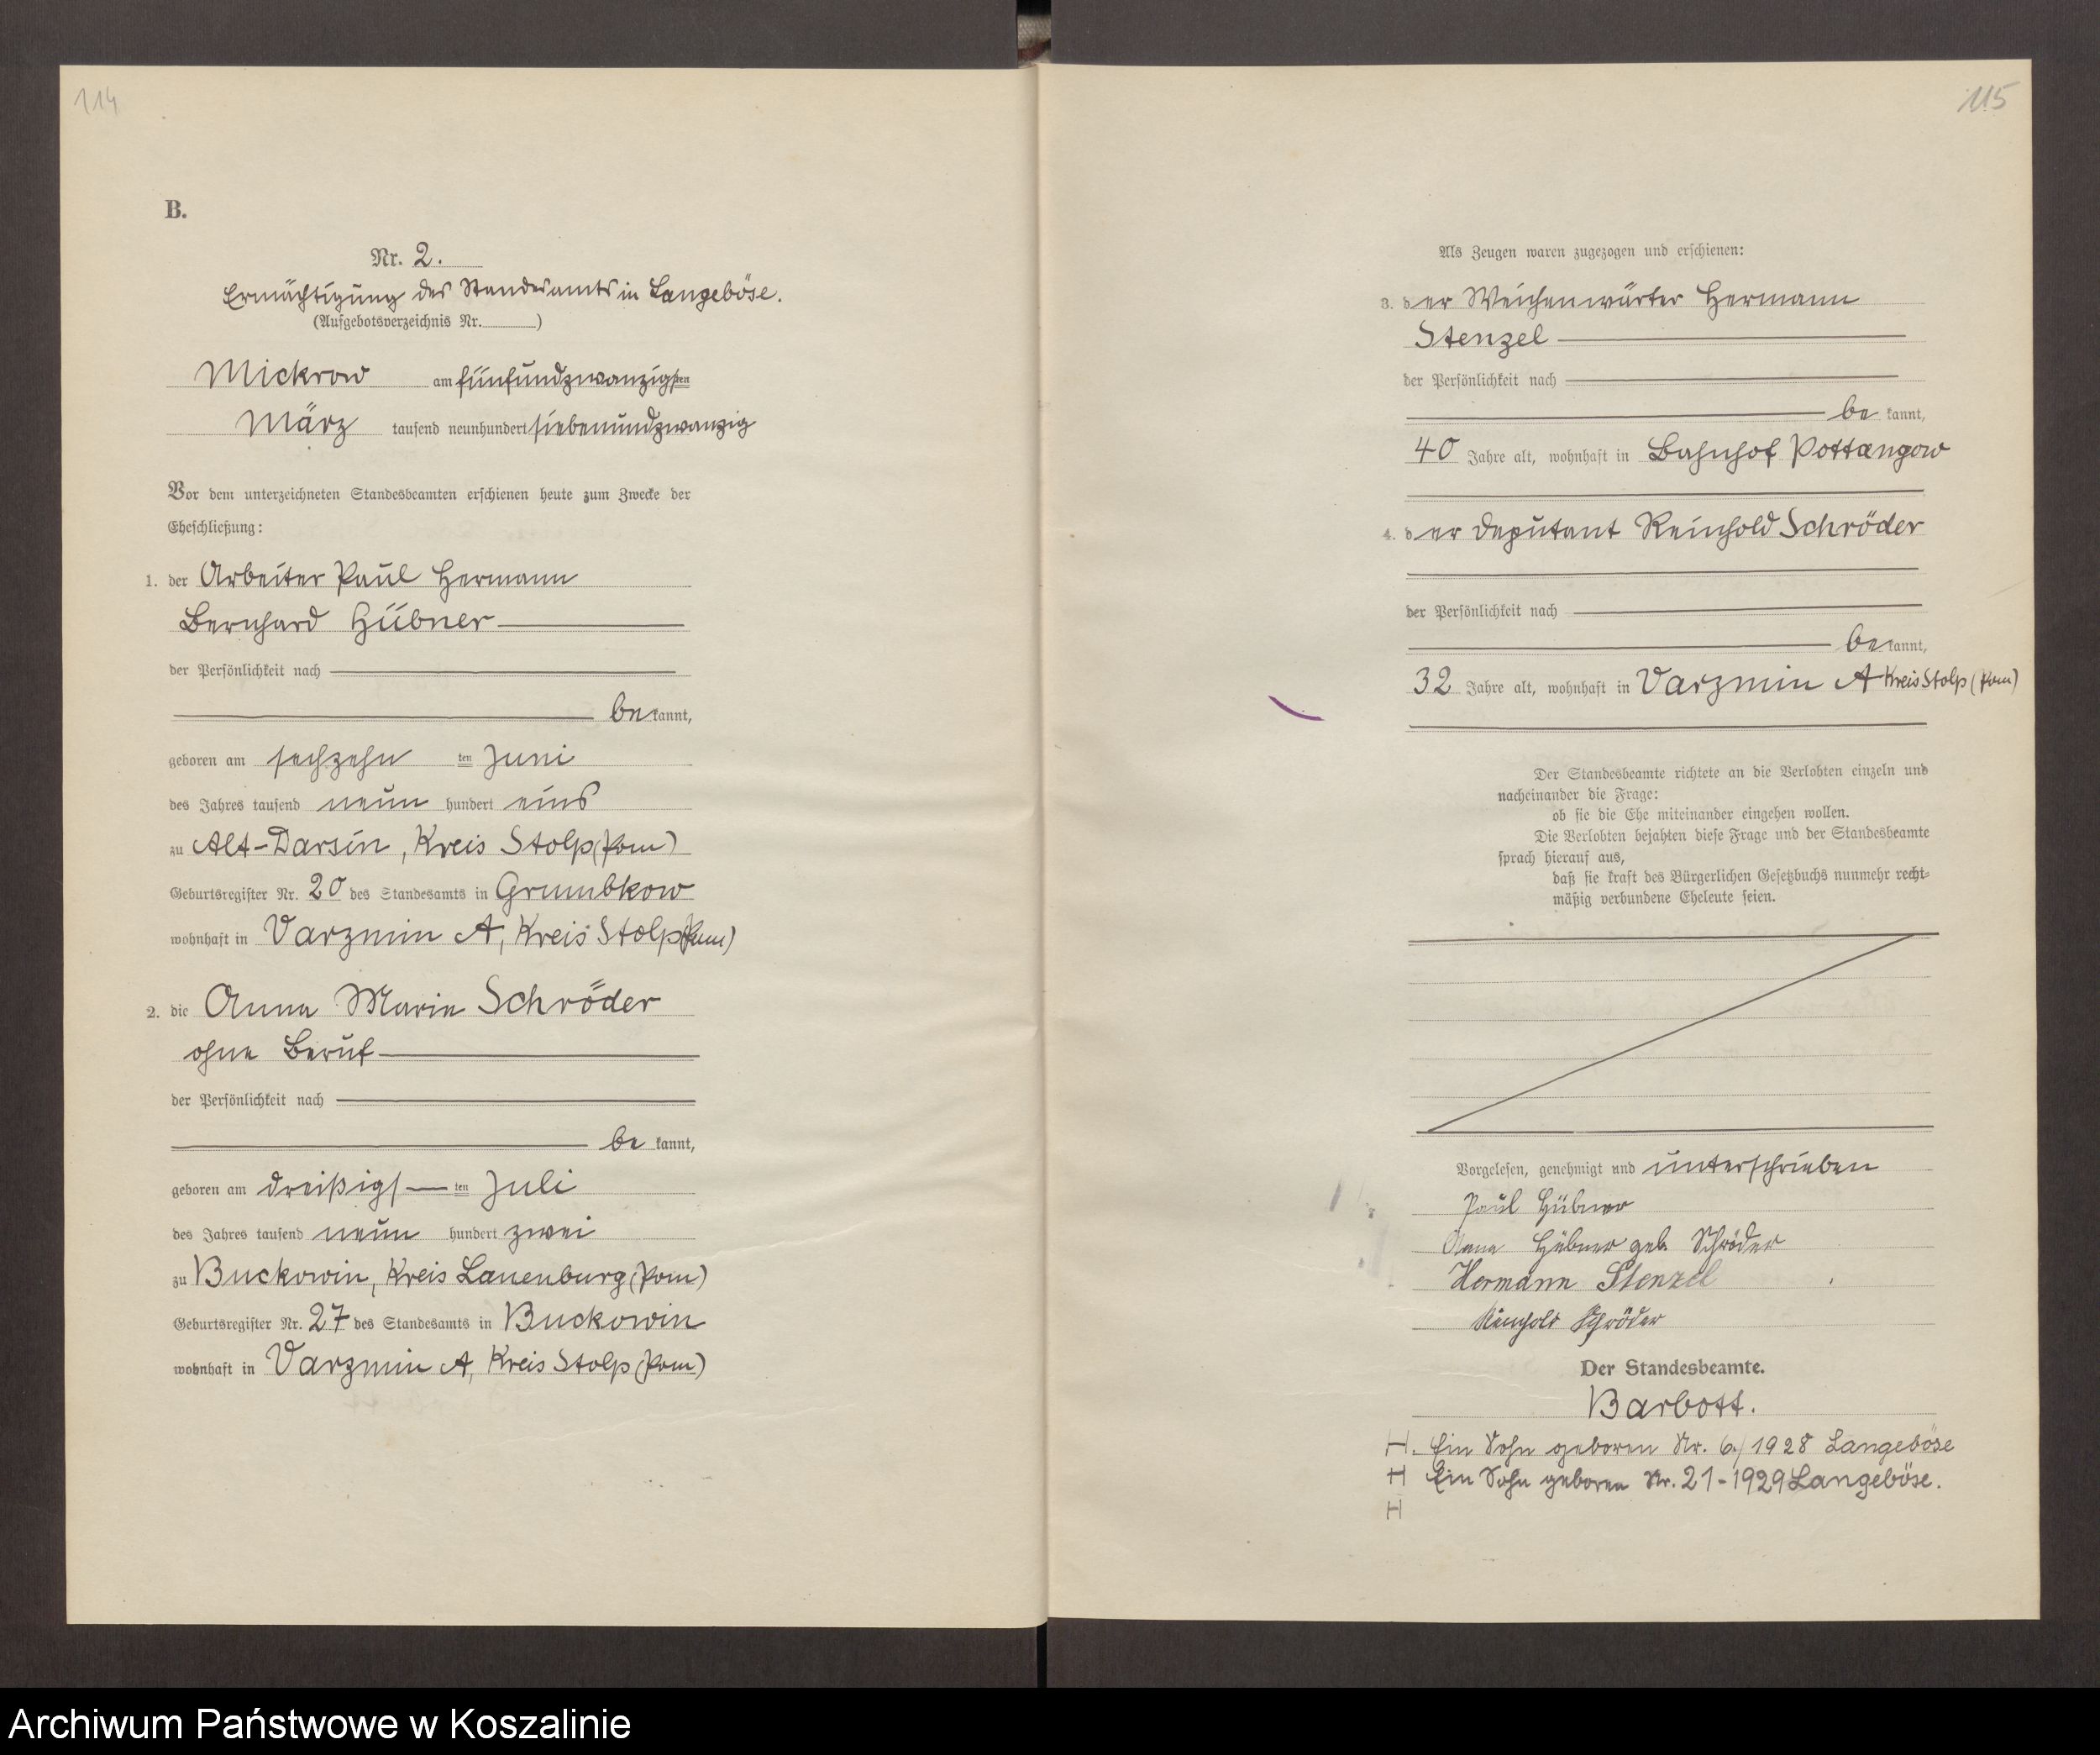 114
B.
Nr. 2.
Ermächtigung des Standesamts in Langeböse.
(Aufgebotsverzeichnis Nr. )
Mickrow am fünfundzwanzigsten
März tausend neunhundert siebenundzwanzig
Vor dem unterzeichneten Standesbeamten erschienen heute zum Zwecke der
Eheschließung:
1. der Arbeiter Paul Hermann
Bernhard Hübner
der Persönlichkeit nach
bekannt,
geboren am sechzehnten Juni
des Jahres tausend neun hundert eins
zu Alt-Darsin, Kreis Stolp (Pom)
Geburtsregister Nr. 20 des Standesamts in Grumbkow
wohnhaft in Varzmin A, Kreis Stolp (Pom)
2. die Anna Marie Schröder
ohne Beruf
der Persönlichkeit nach
bekannt,
geboren am dreißigsten Juli
des Jahres tausend neun hundert zwei
zu Buckowin, Kreis Lauenburg (Pom)
Geburtsregister Nr. 27 des Standesamts in Buckowin
wohnhaft in Varzmin A, Kreis Stolp (Pom)
115
Als Zeugen waren zugezogen und erschienen:
3. der Weichenwärter Hermann
Stenzel
der Persönlichkeit nach
bekannt,
40 Jahre alt, wohnhaft in Bahnhof Pottangow
4. der Deputant Reinhold Schröder
der Persönlichkeit nach
bekannt,
32 Jahre alt, wohnhaft in Varzmin A Kreis Stolp (Pom)
Der Standesbeamte richtete an die Verlobten einzeln und
nacheinander die Frage:
ob sie die Ehe miteinander eingehen wollen.
Die Verlobten bejahten diese Frage und der Standesbeamte
sprach hierauf aus,
daß sie kraft des Bürgerlichen Gesetzbuchs nunmehr recht-
mäßig verbundene Eheleute seien.
Vorgelesen, genehmigt und unterschrieben
Paul Hübner
Anna Hübner geb. Schröder
Hermann Stenzel
Reinhold Schröder
Der Standesbeamte.
Barbott.
H. Ein Sohn geboren Nr. 6/1928 Langeböse
H Ein Sohn geboren Nr. 21-1929 Langeböse.
H
Archiwum Państwowe w Koszalinie